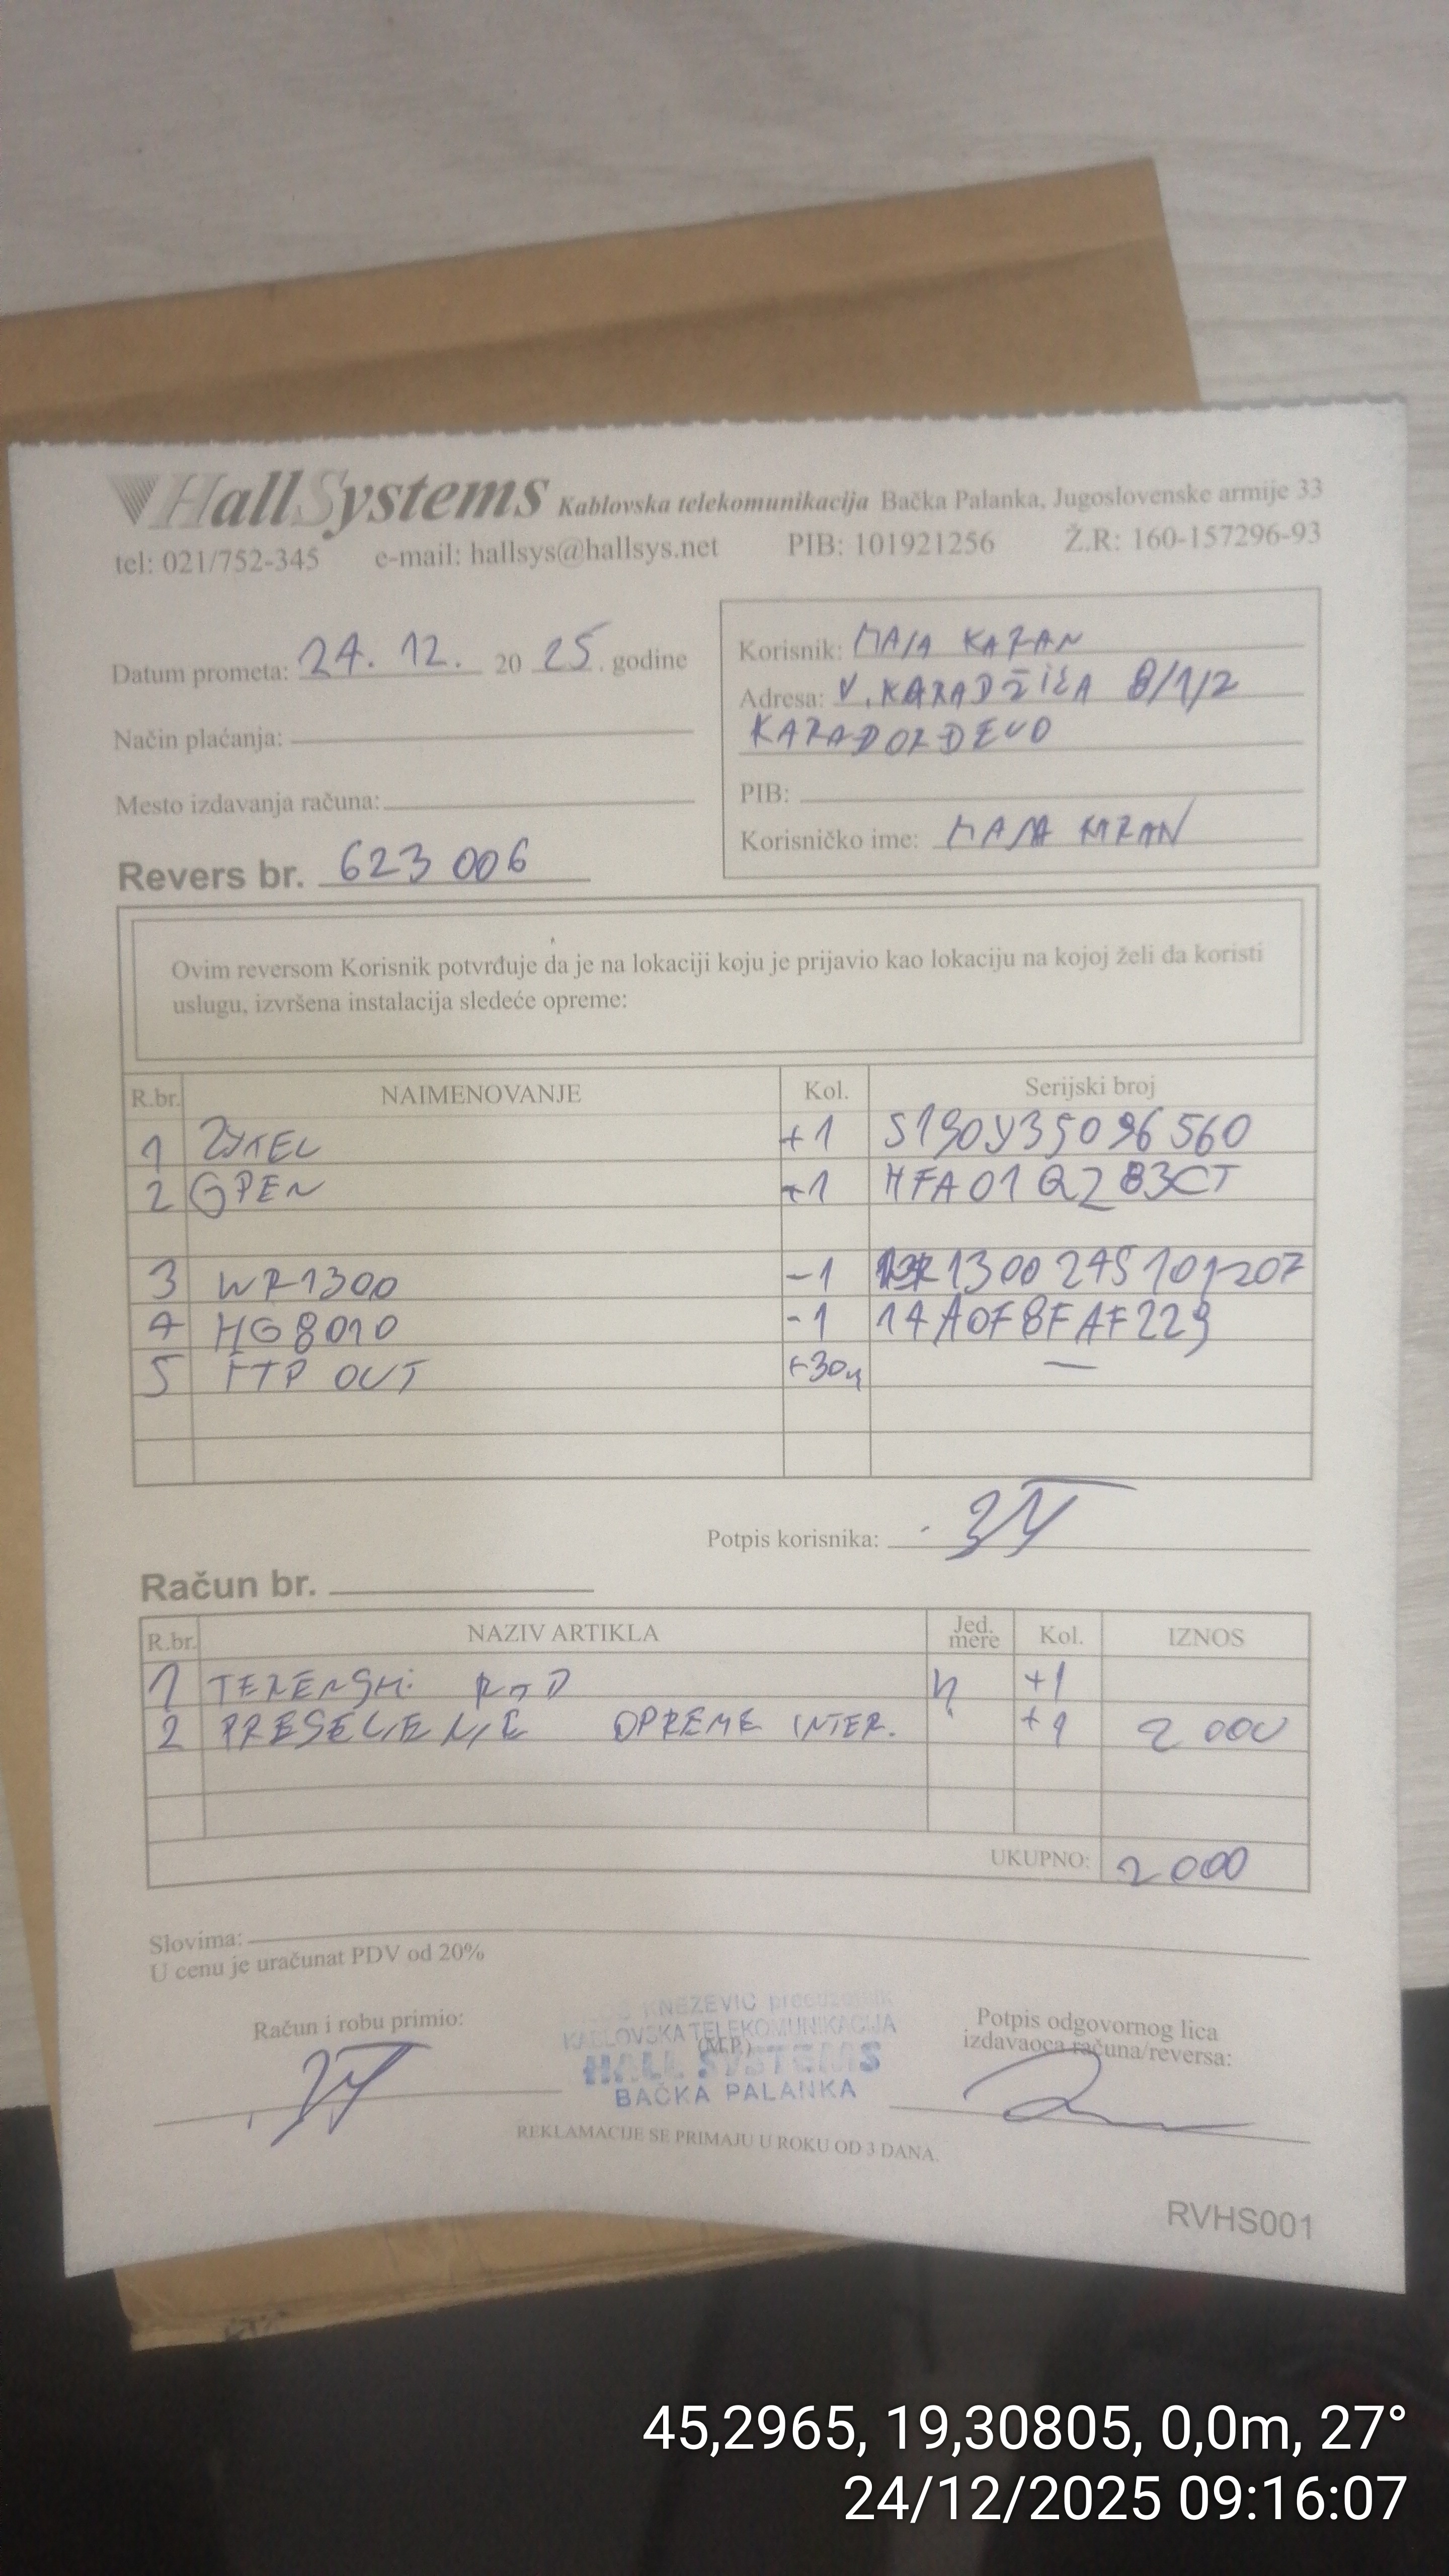 HallSystems Kablovska telekomunikacija Bačka Palanka, Jugoslovenske armije 33
tel: 021/752-345 e-mail: hallsys@hallsys.net PIB: 101921256 Ž.R: 160-157296-93
Datum prometa: 24. 12. 20 25. godine
Način plaćanja:
Mesto izdavanja računa:
Revers br. 623 006
Korisnik: MAJA KARAN
Adresa: V. KARADŽIĆA 8/1/2
KARAĐORĐEVO
PIB:
Korisničko ime: MAJA KARAN
Ovim reversom Korisnik potvrđuje da je na lokaciji koju je prijavio kao lokaciju na kojoj želi da koristi
uslugu, izvršena instalacija sledeće opreme:
R.br. NAIMENOVANJE Kol. Serijski broj
1 ZYXEL +1 S190Y35096560
2 GPEN +1 HFA01Q283CT
3 WR1300 -1
4 HG8010 -1 14A0F8FAF229
5 FTP OUT +30m —
Potpis korisnika:
Račun br.
R.br. NAZIV ARTIKLA Jed. mere Kol. IZNOS
1 TERENSKI RAD h +1
2 PRESELJENJE OPREME INTER. +1 2 000
UKUPNO: 2 000
Slovima:
U cenu je uračunat PDV od 20%
Račun i robu primio:
KNEZEVIC preduzetnik
KABLOVSKA TELEKOMUNIKACIJA
(M.P.)
HALL SYSTEMS
BAČKA PALANKA
Potpis odgovornog lica
izdavaoca računa/reversa:
REKLAMACIJE SE PRIMAJU U ROKU OD 3 DANA.
RVHS001
45,2965, 19,30805, 0,0m, 27°
24/12/2025 09:16:07